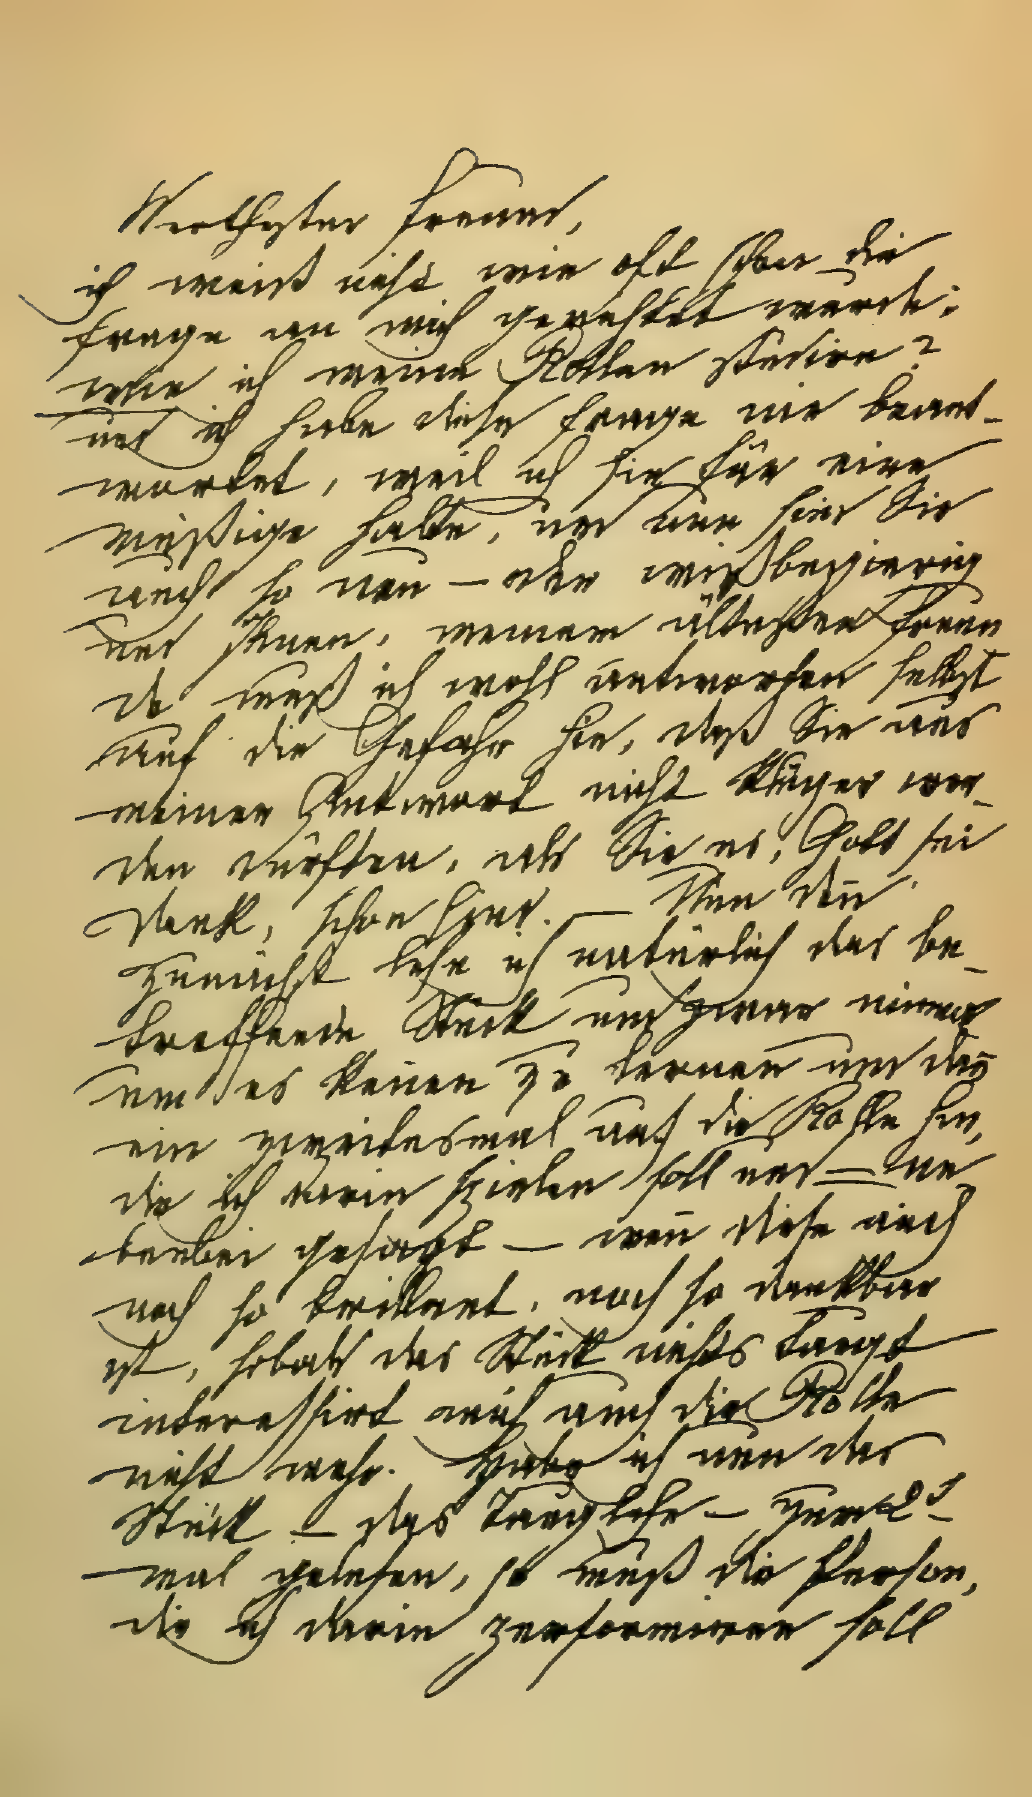 Werthester Freund,
ich weiß nicht wie oft schon die
Frage an mich gerichtet wurde:
wie ich meine Rollen studire?
und ich habe diese Frage nie beant-
wortet, weil ich sie für eine
müßige halte, und nun sind Sie
auch so neu — oder wißbegierig
und Ihnen, meinem ältesten Freun
de muß ich wohl antworten selbst
auf die Gefahr hin, daß Sie aus
meiner Antwort nicht klüger wer-
den dürften, als Sie es, Gott sei
Dank, schon sind. — Nun den̅
zunächst lese ich natürlich das be-
treffende Stück und zwar einmal
um es kennen zu lernen und das
ein zweitesmal auf die Rolle hin,
die ich darin spielen soll und — ne
benbei gesagt — wen̅ diese auch
noch so brillant, noch so dankbar
ist, sobald das Stück nichts taugt
interessirt mich auch die Rolle
nicht mehr. Habe ich nun das
Stück — das Taugliche — zum 2t-
mal gelesen, so muß die Person,
die ich darin performiren soll